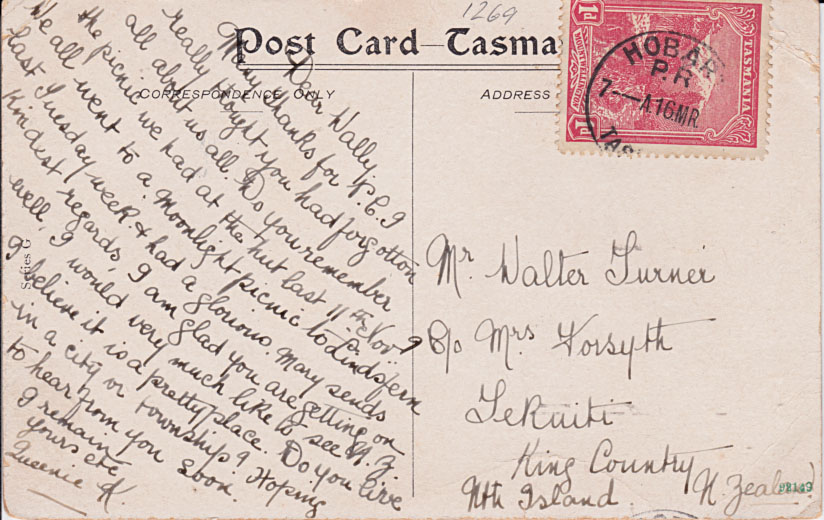 1269
Post Card—Tasma
CORRESPONDENCE ONLY
ADDRESS
Series G
Dear Wally,
Many thanks for P.C. I
really thought you had forgotton
all about us all. Do you remember
the picnic we had at the Hut last 11th Nov?
We all went to a Moonlight picnic to Lindsfern
last Tuesday week & had a glorious. Mary sends
kindest regards, I am glad you are getting on
well, I would very much like to see N.Z.
I believe it is a pretty place. Do you live
in a city or township? Hoping
to hear from you soon.
I remain
yours etc
Queenie K.
1d
1d
TASMANIA
MOUNT WELLINGTON
1d
HOBAR
P.R
7- A.16MR
TAS
Mr. Walter Turner
C/o Mrs Forsyth
TeKuiti
King Country
Nth Island. N. Zealand
98149